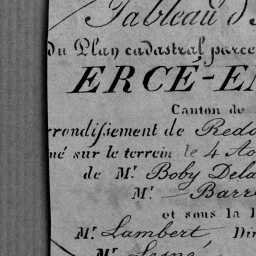 Tableau d'
du Plan cadastral parce
ERCÉ-E
Canton de
rrondissement de Redo
né sur le terrein le 4 Ao
de Mr. Boby Dela
Mr. Barr
et sous la
Mr. Lambert Di
Mr. Lesné